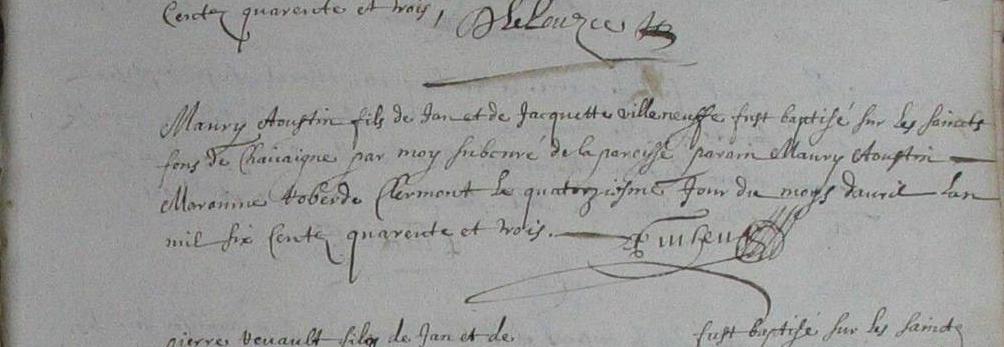 Centz quarente et trois,
Maury Aoustin fils de Jan et de Jacquette villeneuffe fust baptisé sur les saincts
fons de Chavaigne par moy subcuré de la paroisse parain Maury Aoustin
Maranine Clermont le quatorzisme Jour du moys davril lan
mil six Centz quarente et trois.
pierre veuault filz de Jan et de fust baptisé sur les saincts